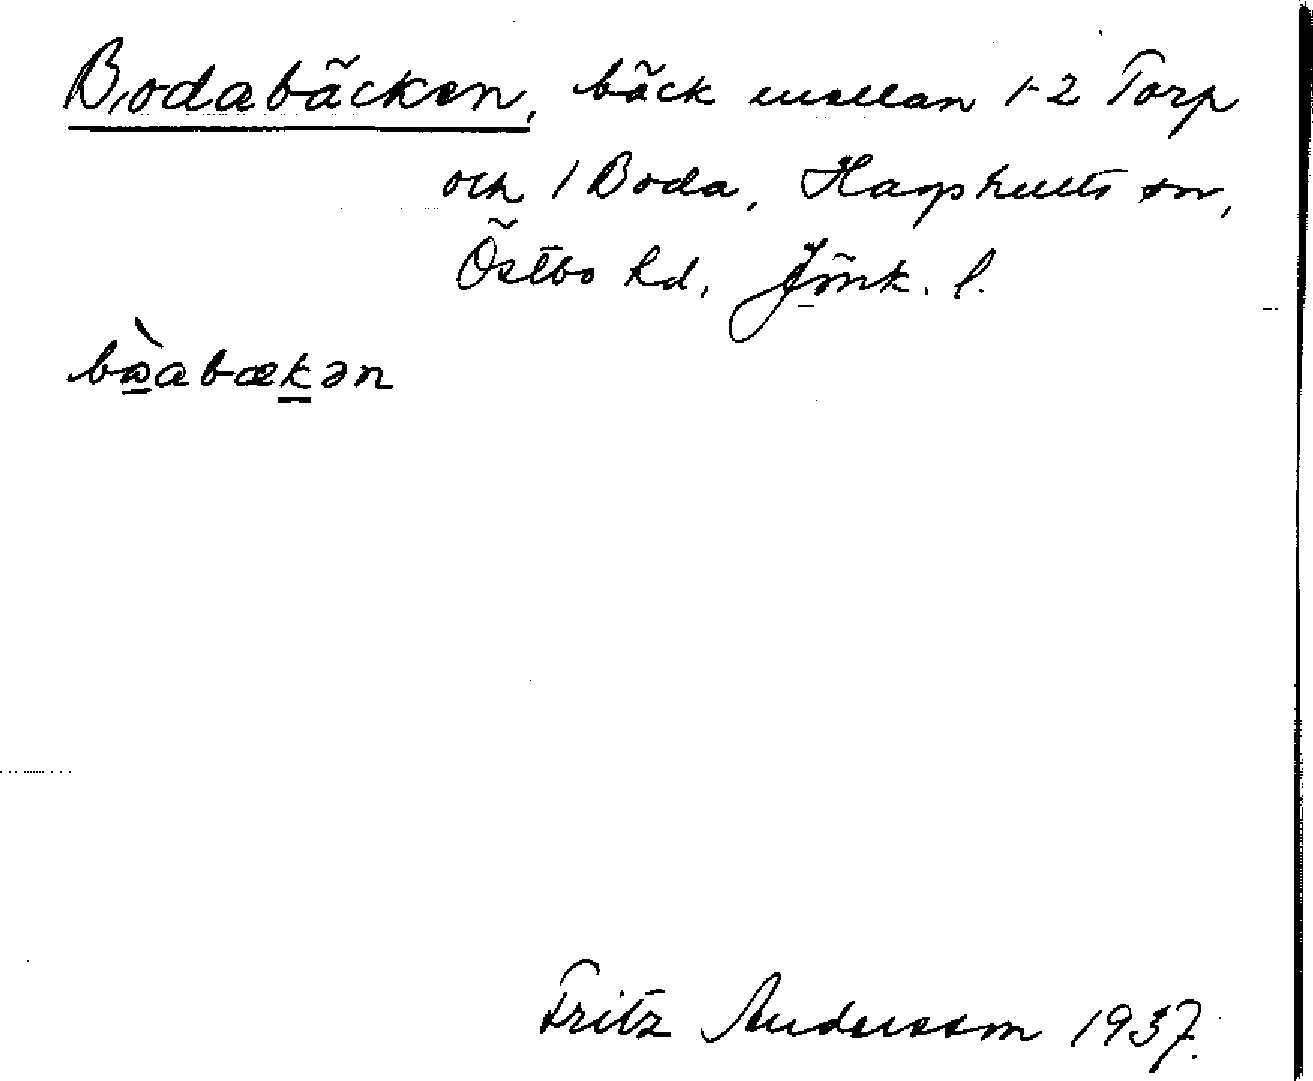 Bodabäcken, bäck mellan 1-2 Torp
och 1 Boda, Hagshults sn,
Östbo hd, Jönk. l.
bàabækən
Fritz Andersson 1937.